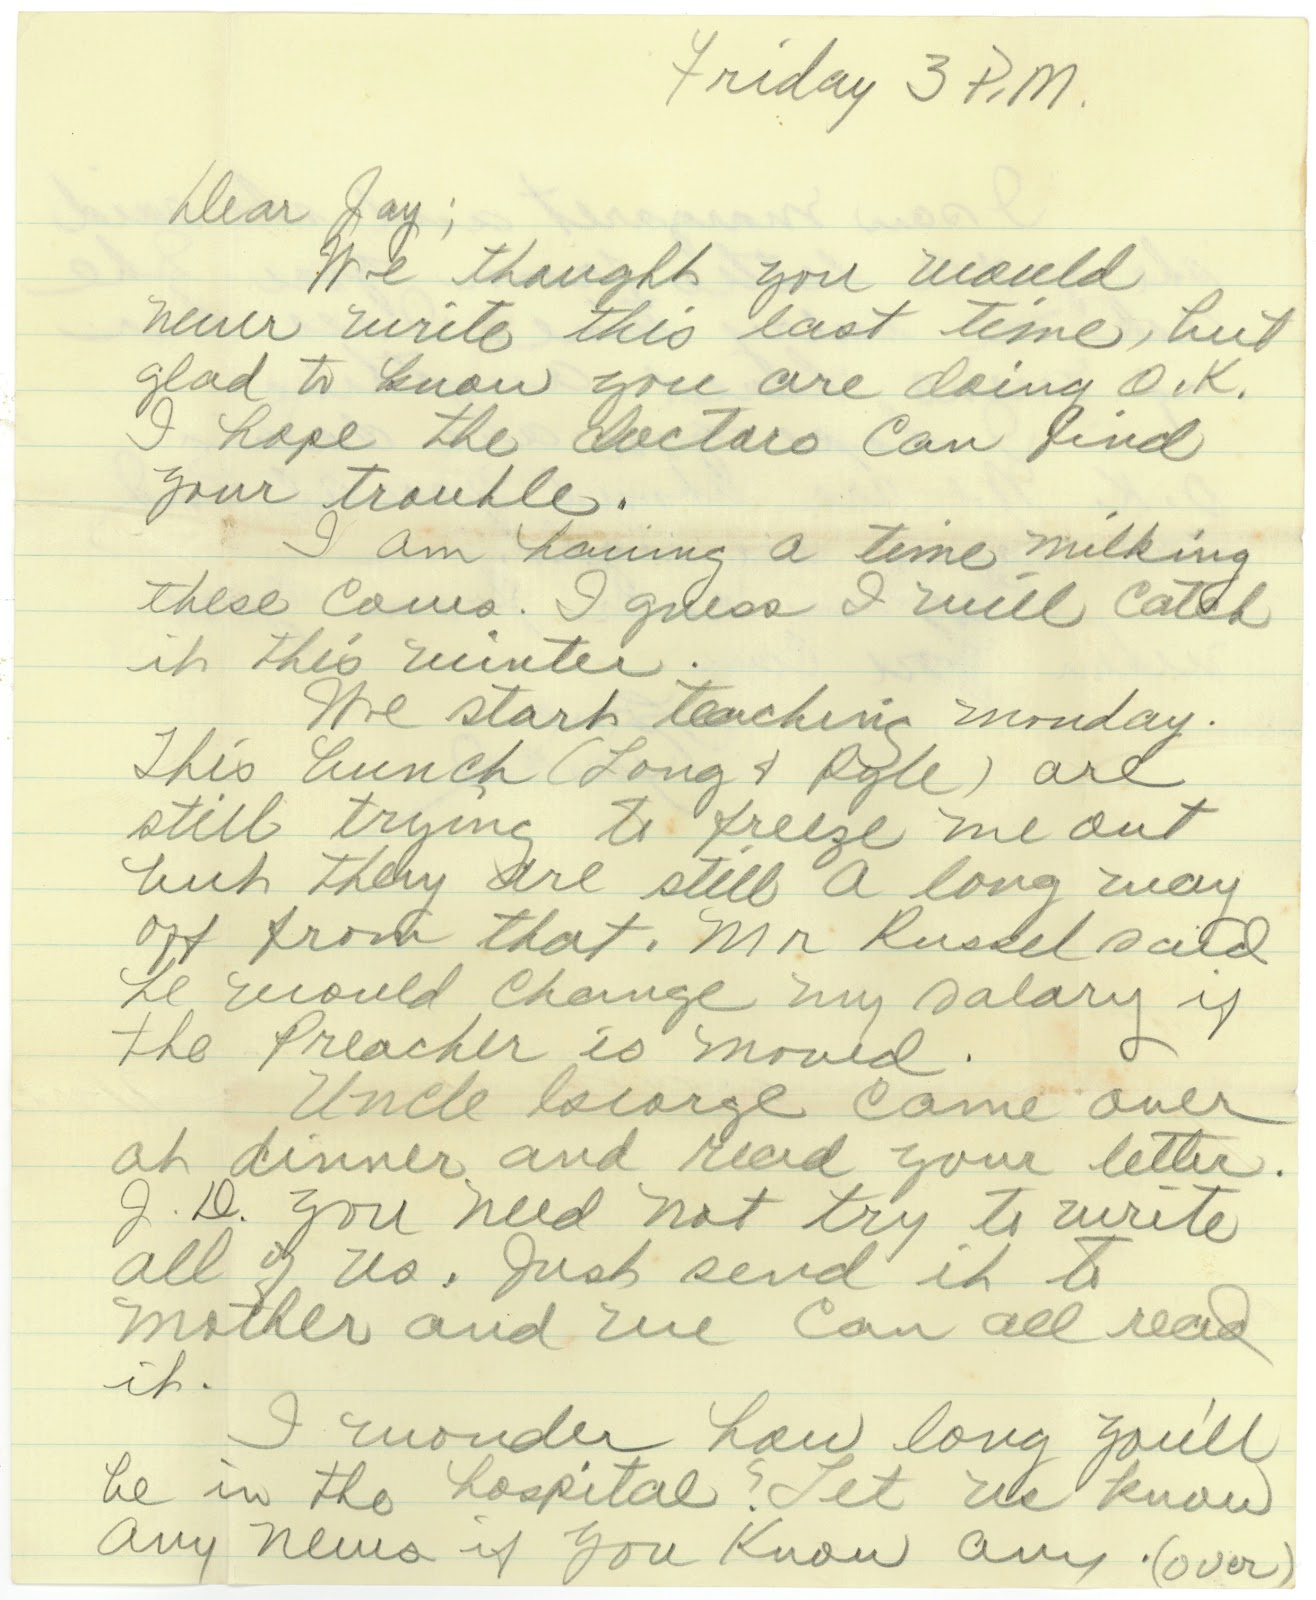 Friday 3 P.M.
Dear Jay;
We thought you would
never write this last time, but
glad to know you are doing O.K.
I hope the doctors can find
your trouble.
I am having a time milking
these cows. I guess I will catch
it this winter.
We start teaching Monday.
This bunch (Long & Ryle) are
still trying to freeze me out
but they are still a long way
off from that. Mr Russel said
he would change my salary if
the Preacher is moved.
Uncle George came over
at dinner and read your letter.
J. D. you need not try to write
all of us. Just send it to
Mother and we can all read
it.
I wonder how long you'll
be in the hospital? Let us know
any news if you know any. (over)